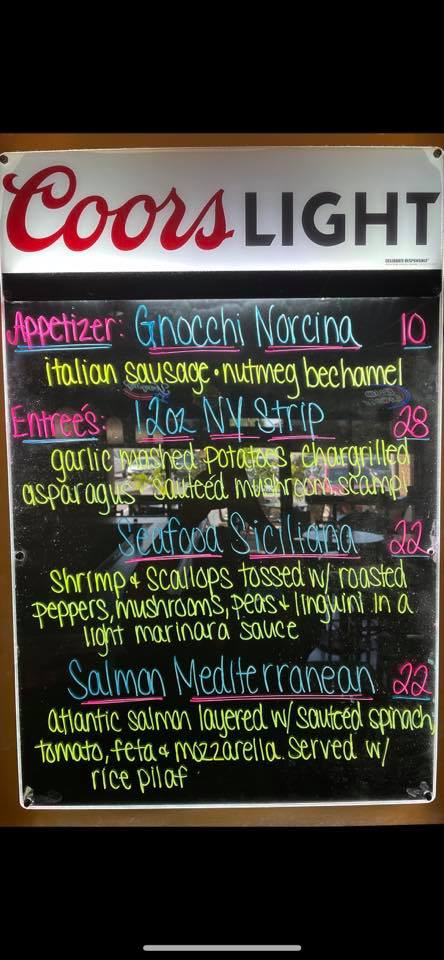 Coors LIGHT
Appetizer: Gnocchi Norcina 10
italian sausage • nutmeg bechamel
Entreé's: 12oz NY Strip 28
garlic mashed potatoes, chargrilled
asparagus sauteéd mushroom scampi
Seafood Siciliana 22
Shrimp & Scallops tossed w/ roasted
peppers, mushrooms, peas & linguini in a
light marinara sauce
Salmon Mediterranean 22
atlantic salmon layered w/ sauteéd spinach,
tomato, feta & mozzarella. Served w/
rice pilaf